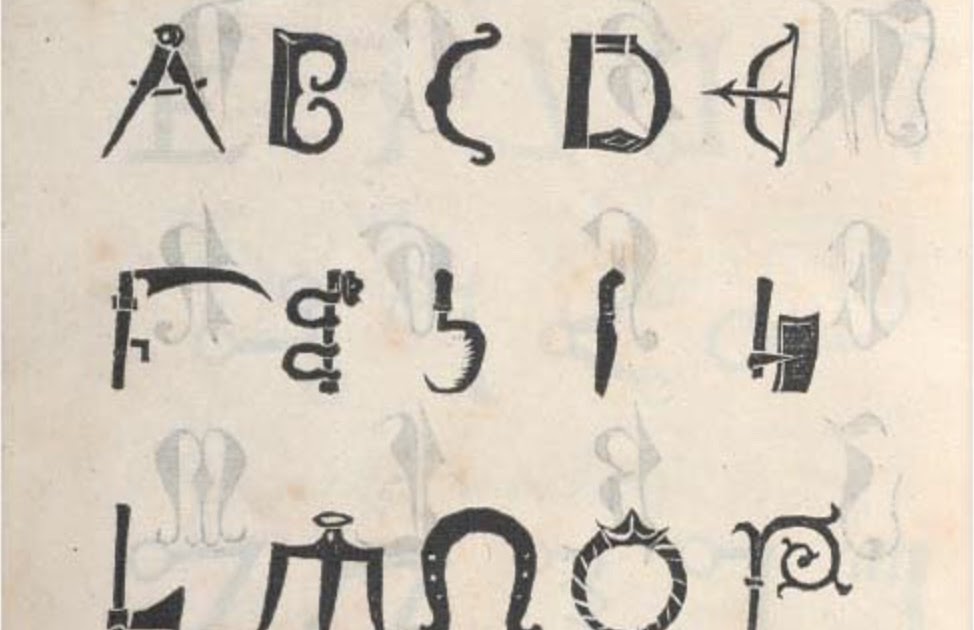 A B C D E
F G H I K
L M N O P